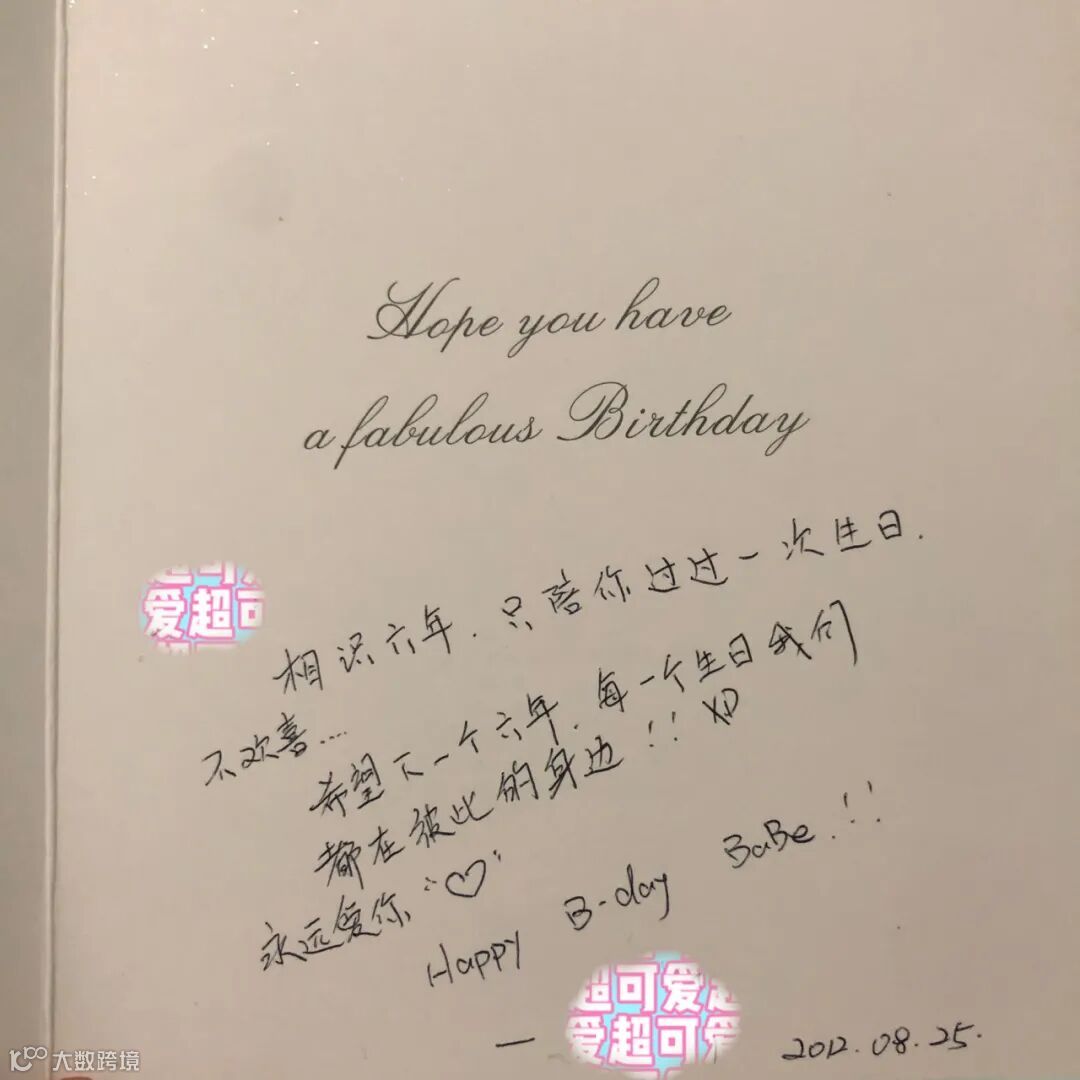 Hope you have
a fabulous Birthday
爱超可
相识六年. 只陪你过过一次生日.
不欢喜....
希望下一个六年. 每一个生日我们
都在彼此的身边!! XD
永远爱你 "♡"
Happy B-day BaBe.!!
超可爱超
— 爱超可爱 2012.08.25.
大数跨境